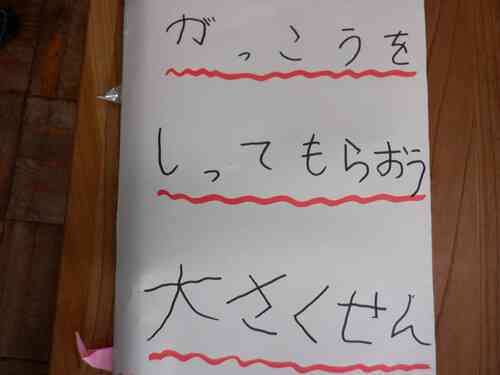 がっこうを
しってもらおう
大さくせん